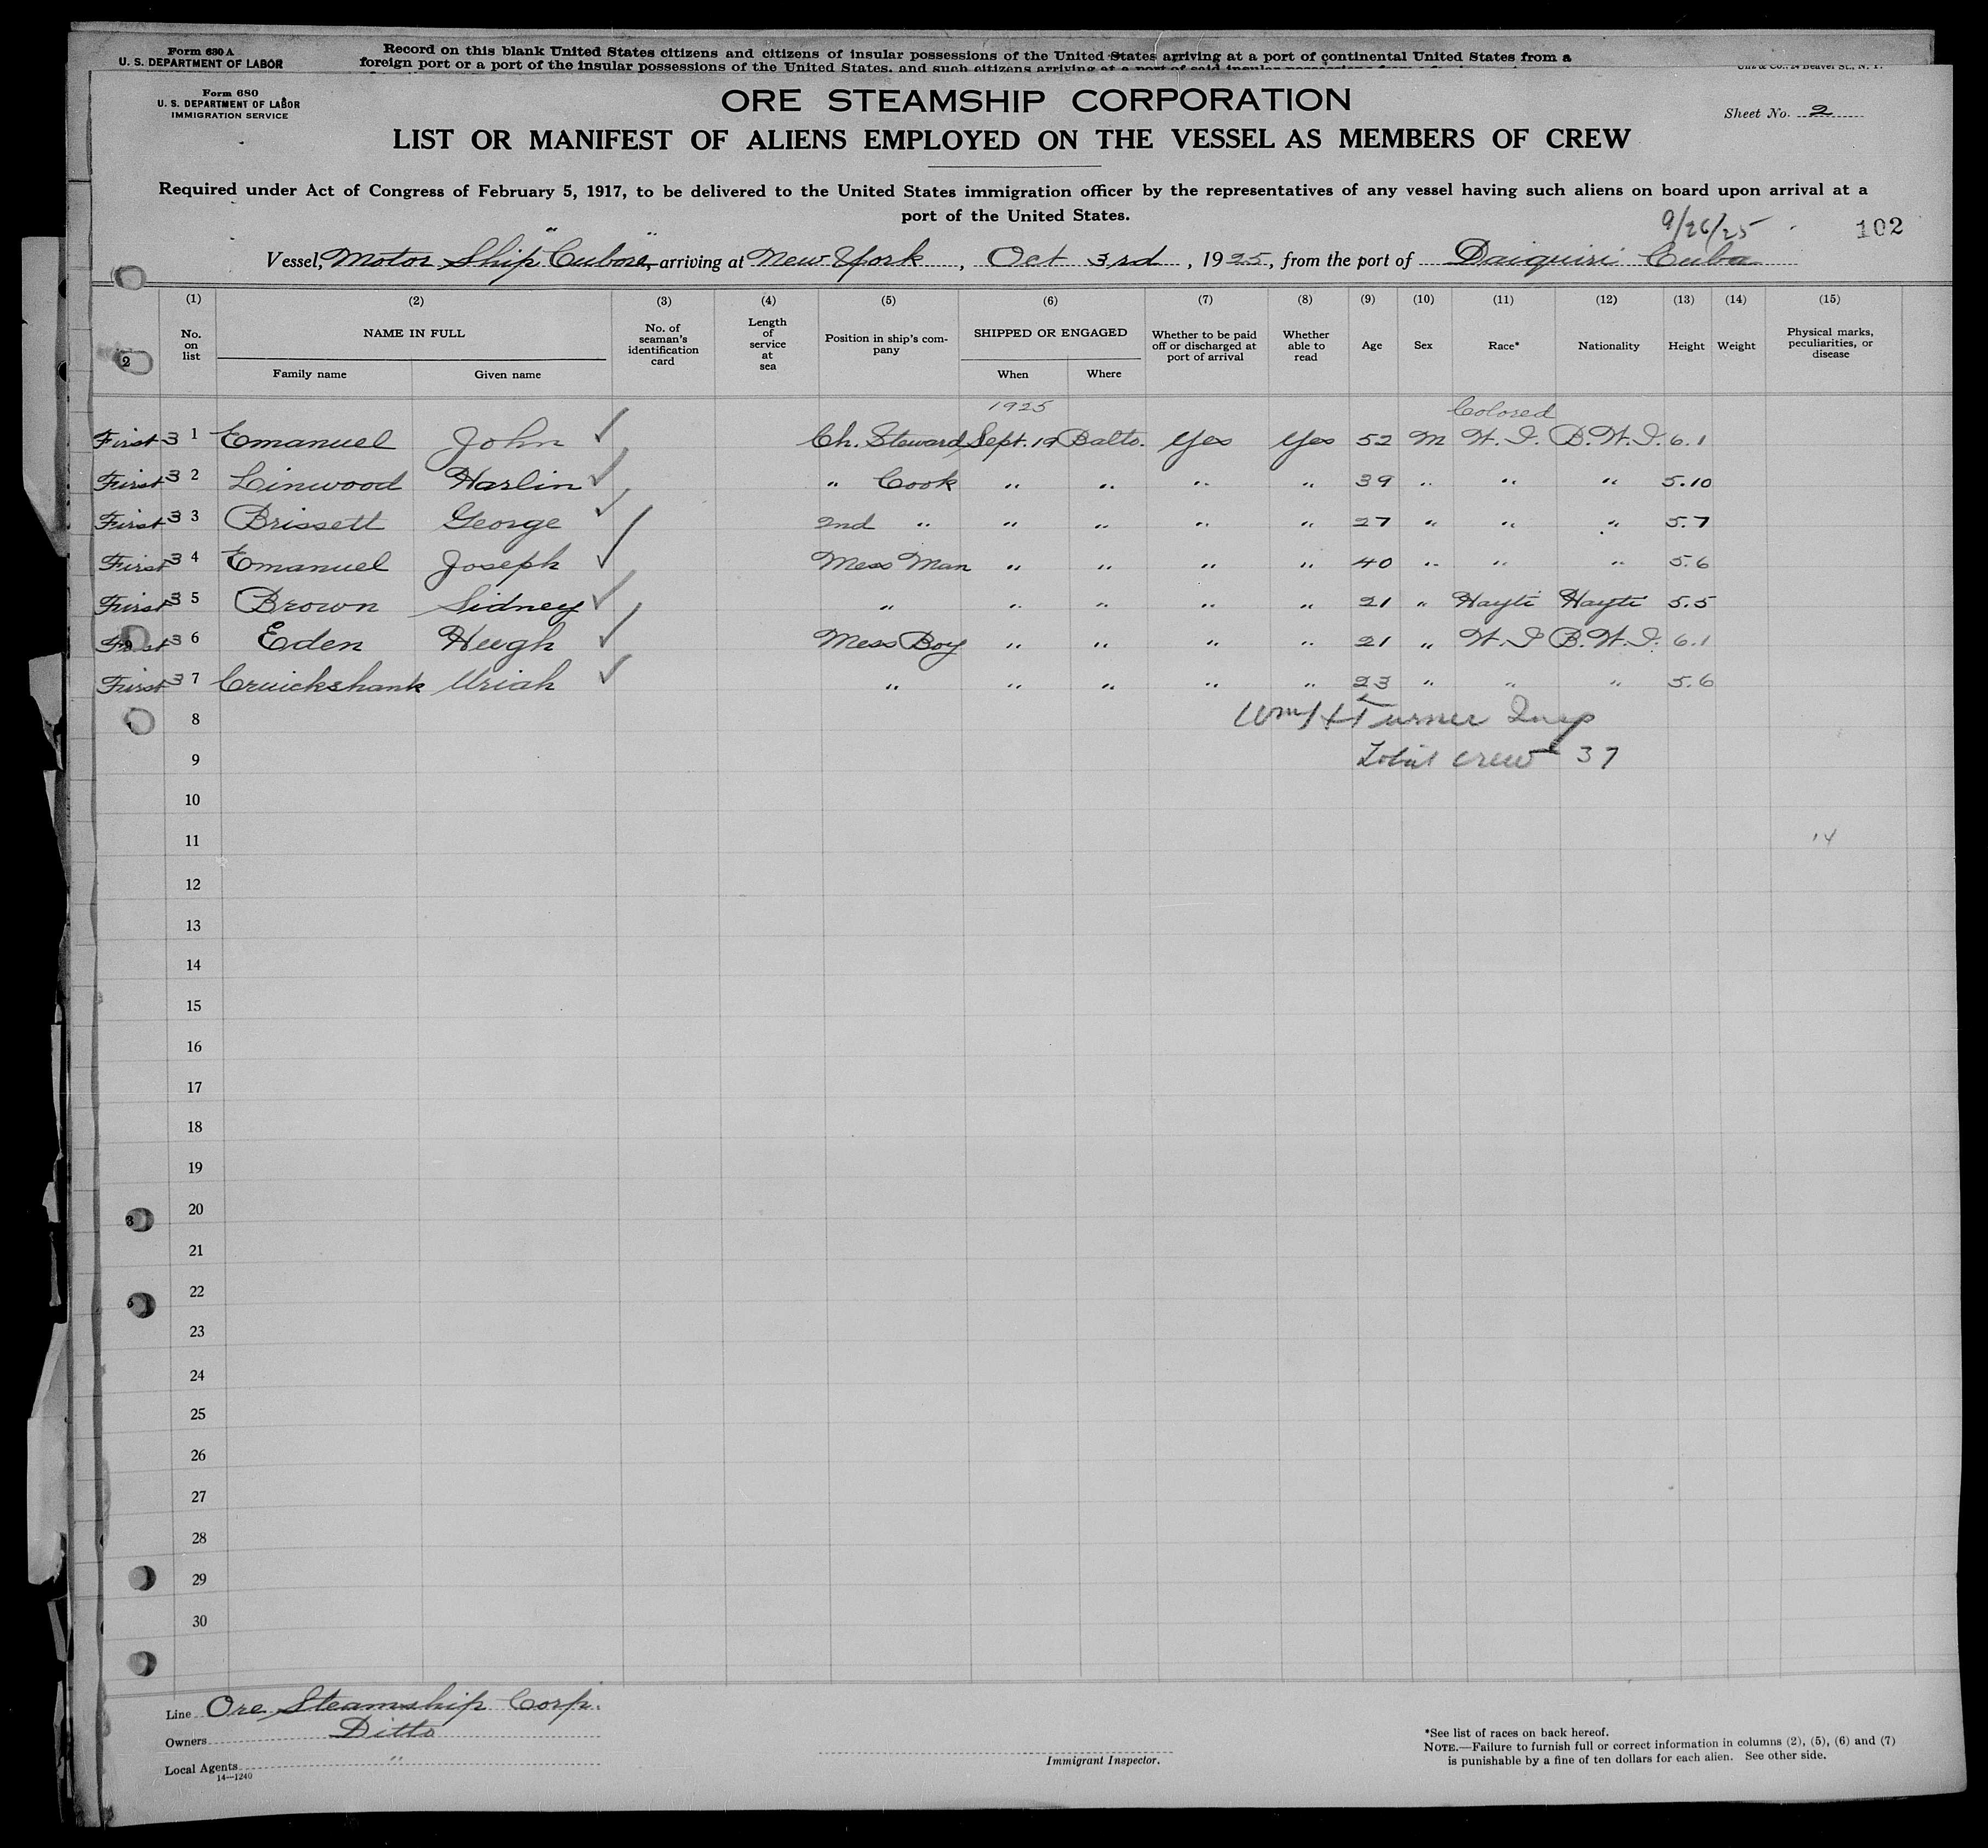 Form 630 A
U. S. DEPARTMENT OF LABOR
Record on this blank United States citizens and citizens of insular possessions of the United States arriving at a port of continental United States from a
foreign port or a port of the insular possessions of the United States, and such citizens arriving at a port of said insular possessions from a
Form 680
U. S. DEPARTMENT OF LABOR
IMMIGRATION SERVICE
ORE STEAMSHIP CORPORATION
Sheet No. 2
LIST OR MANIFEST OF ALIENS EMPLOYED ON THE VESSEL AS MEMBERS OF CREW
Required under Act of Congress of February 5, 1917, to be delivered to the United States immigration officer by the representatives of any vessel having such aliens on board upon arrival at a
port of the United States.
9/26/25
102
Vessel, Motor Ship "Cubore", arriving at New York, Oct 3rd, 1925, from the port of Daiquiri Cuba
(1) (2) (3) (4) (5) (6) (7) (8) (9) (10) (11) (12) (13) (14) (15)
No. on list NAME IN FULL Family name Given name No. of seaman's identification card Length of service at sea Position in ship's company SHIPPED OR ENGAGED When Where Whether to be paid off or discharged at port of arrival Whether able to read Age Sex Race* Nationality Height Weight Physical marks, peculiarities, or disease
1925 Colored
First 3 1 Emanuel John ✓ Ch. Steward Sept. 19 Balto. Yes Yes 52 M W. I. B. W. I. 6.1
First 3 2 Linwood Harlin ✓ " Cook " " " " 39 " " " 5.10
First 3 3 Brissett George ✓ 2nd " " " " " 27 " " " 5.7
First 3 4 Emanuel Joseph ✓ Mess Man " " " " 40 " " " 5.6
First 3 5 Brown Sidney ✓ " " " " " 21 " Hayti Hayti 5.5
First 3 6 Eden Hugh ✓ Mess Boy " " " " 21 " W. I B. W. I. 6.1
First 3 7 Cruickshank Uriah ✓ " " " " " 23 " " " 5.6
8 Wm H Turner Insp
9 Total crew 37
10
11 14
12
13
14
15
16
17
18
19
20
21
22
23
24
25
26
27
28
29
30
Line Ore Steamship Corp.
Owners Ditto
Local Agents "
14—1240
Immigrant Inspector.
*See list of races on back hereof.
NOTE.—Failure to furnish full or correct information in columns (2), (5), (6) and (7)
is punishable by a fine of ten dollars for each alien. See other side.